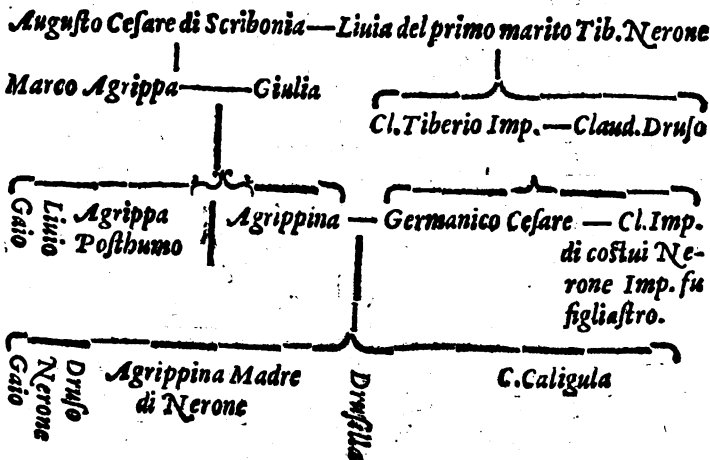 Auguſto Ceſare di Scribonia—Liuia del primo marito Tib. Nerone
Marco Agrippa—Giulia
Cl. Tiberio Imp.—Claud. Druſo
Gaio
Liuio
Agrippa
Poſthumo
Agrippina — Germanico Ceſare — Cl. Imp.
di coſtui Ne-
rone Imp. fu
figliaſtro.
Gaio
Nerone
Druſo
Agrippina Madre
di Nerone
Druſilla
C. Caligula